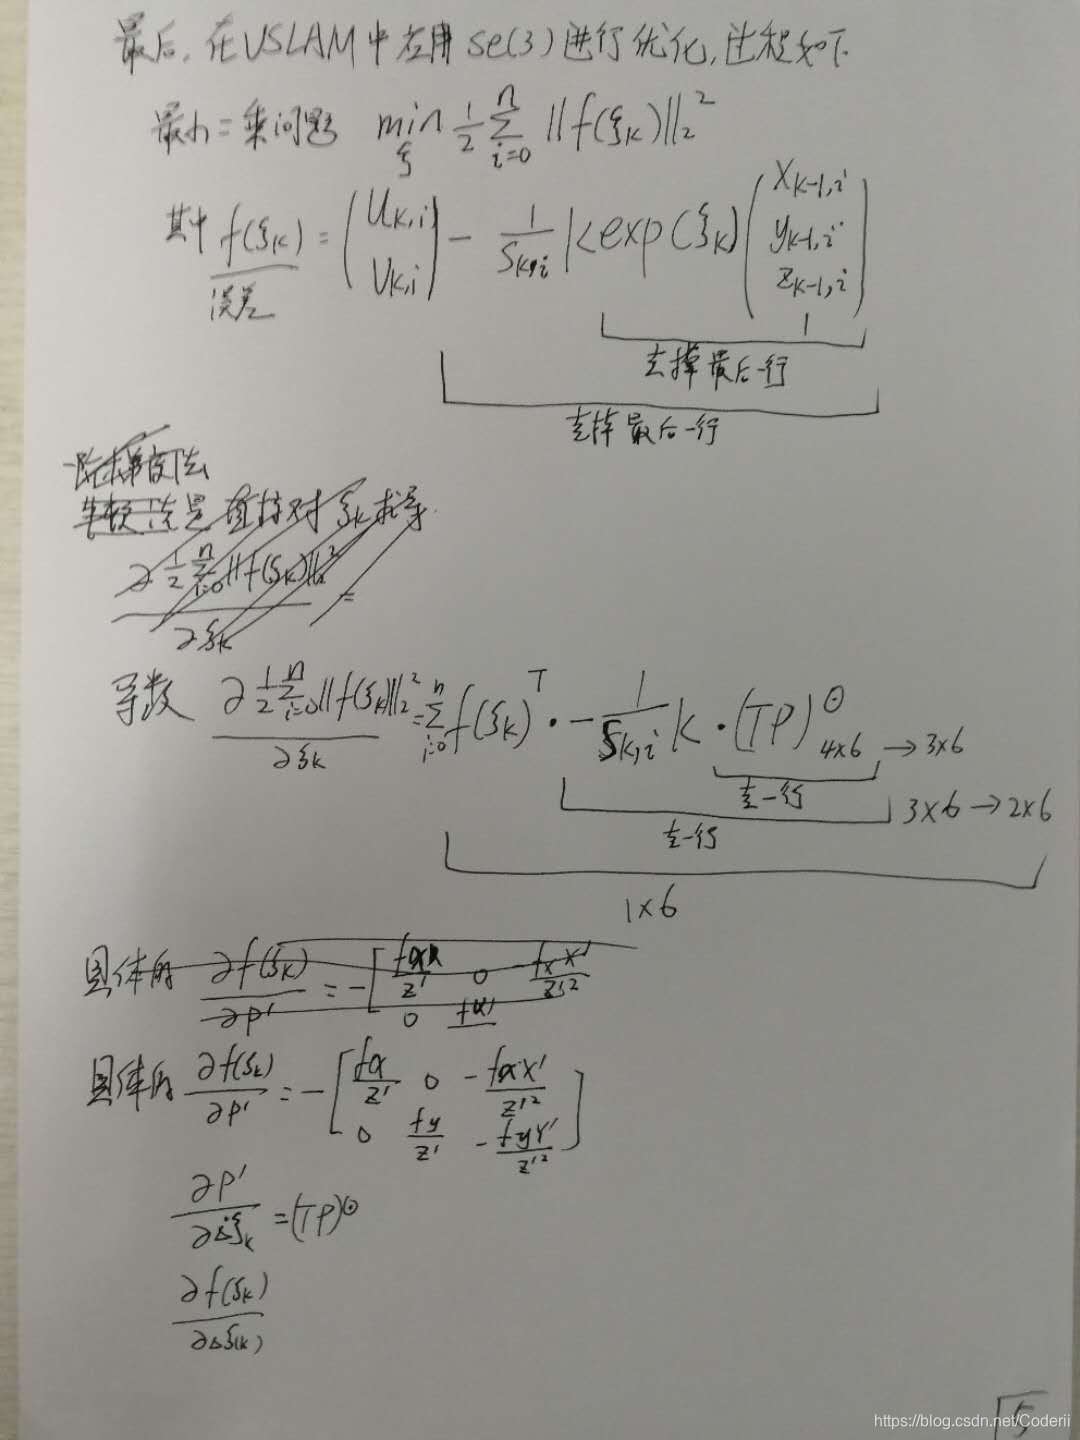 最后,在VSLAM中应用se(3)进行优化,过程如下
最小二乘问题 min_ξ 1/2 Σ_{i=0}^{n} ||f(ξ_k)||_2^2
其中 f(ξ_k) = (u_{k,i} v_{k,i}) - 1/s_{k,i} K exp(ξ_k) (x_{k-1,i} y_{k-1,i} z_{k-1,i} 1)
误差
去掉最后一行
去掉最后一行
一阶梯度法
是直接对ξ_k求导.
∂ 1/2 Σ_{i=0}^{n} ||f(ξ_k)||_2^2 / ∂ξ_k =
导数 ∂ 1/2 Σ_{i=0}^{n} ||f(ξ_k)||_2^2 / ∂ξ_k = Σ_{i=0}^{n} f(ξ_k)^T · - 1/s_{k,i} K · (TP)^⊙ 4×6 → 3×6
去一行
3×6 → 2×6
去一行
1×6
具体的 ∂f(ξ_k)/∂P' = - [ fx/z' 0 - fxX'/z'^2
0 fy
具体的 ∂f(ξ_k)/∂P' = - [ fx/z' 0 - fxX'/z'^2
0 fy/z' - fyY'/z'^2 ]
∂P'/∂Δξ_k = (TP)^⊙
∂f(ξ_k)/∂Δξ(k)
5
https://blog.csdn.net/Coderii